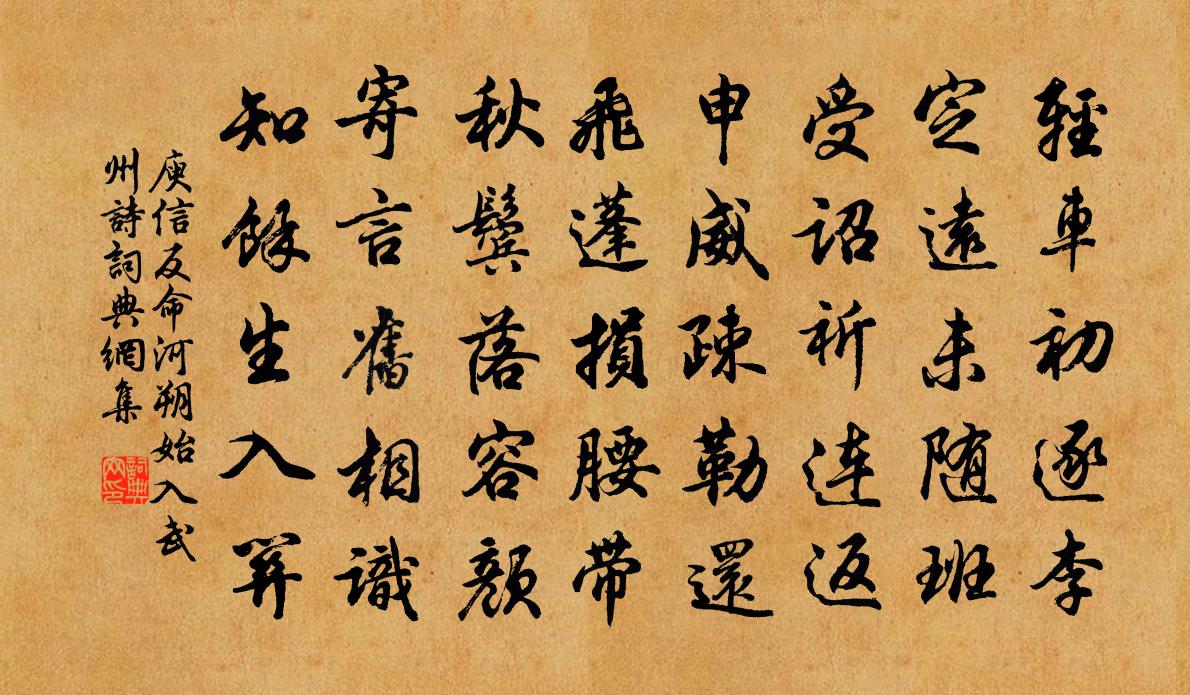 輕車初逐李
定遠未随班
受詔祈連返
申威疎勒還
飛蓬損腰帶
秋鬢落容顔
寄言舊相識
知餘生入關
庾信反命河朔始入武
州詩詞典網集
詞典網印